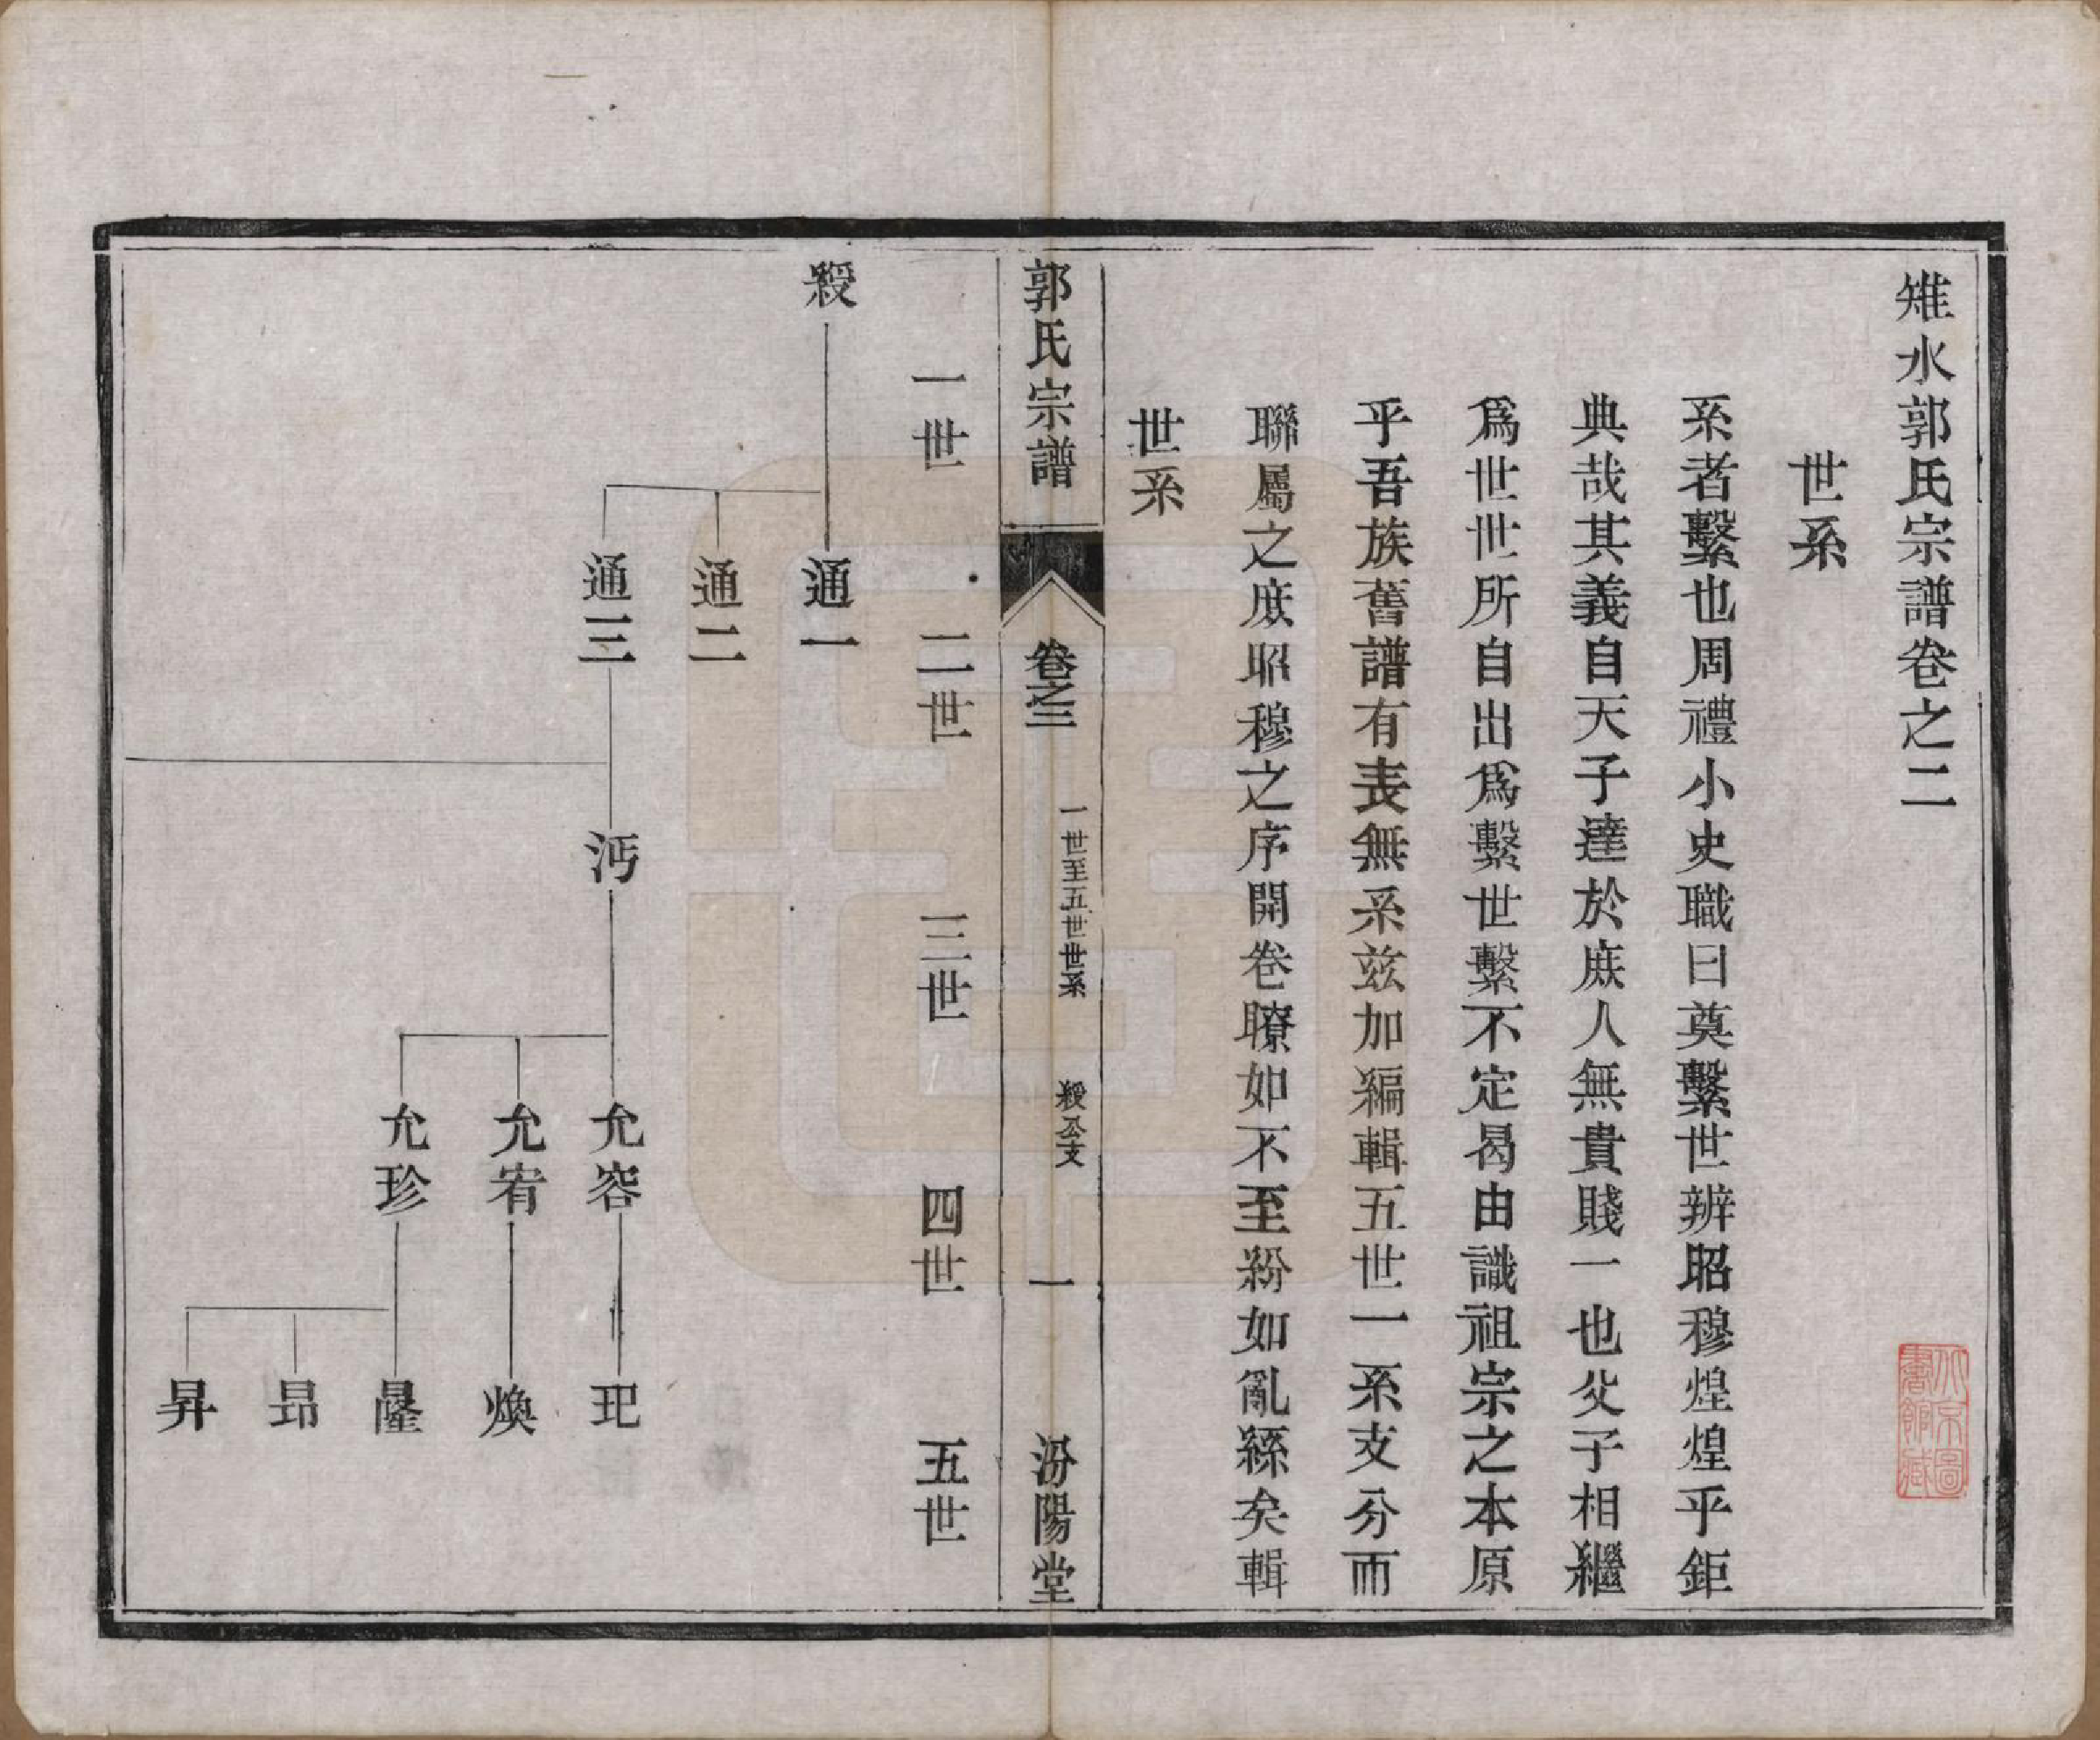 雉水郭氏宗譜卷之二
世系
系者繫也周禮小史職曰奠繫世辨昭穆煌煌乎鉅
典哉其義自天子達於庶人無貴賤一也父子相繼
爲世世所自出爲繫世繫不定曷由識祖宗之本原
乎吾族舊譜有表無系玆加編輯五世一系支分而
聯屬之庶昭穆之序開卷瞭如不至紛如亂絲矣輯
世系
郭氏宗譜
卷之二
一世至五世世系
綬公支
一
汾陽堂
一世
二世
三世
四世
五世
綬
通一
通二
通三
沔
允容
允宥
允珍
玘
煥
暹
昻
昇